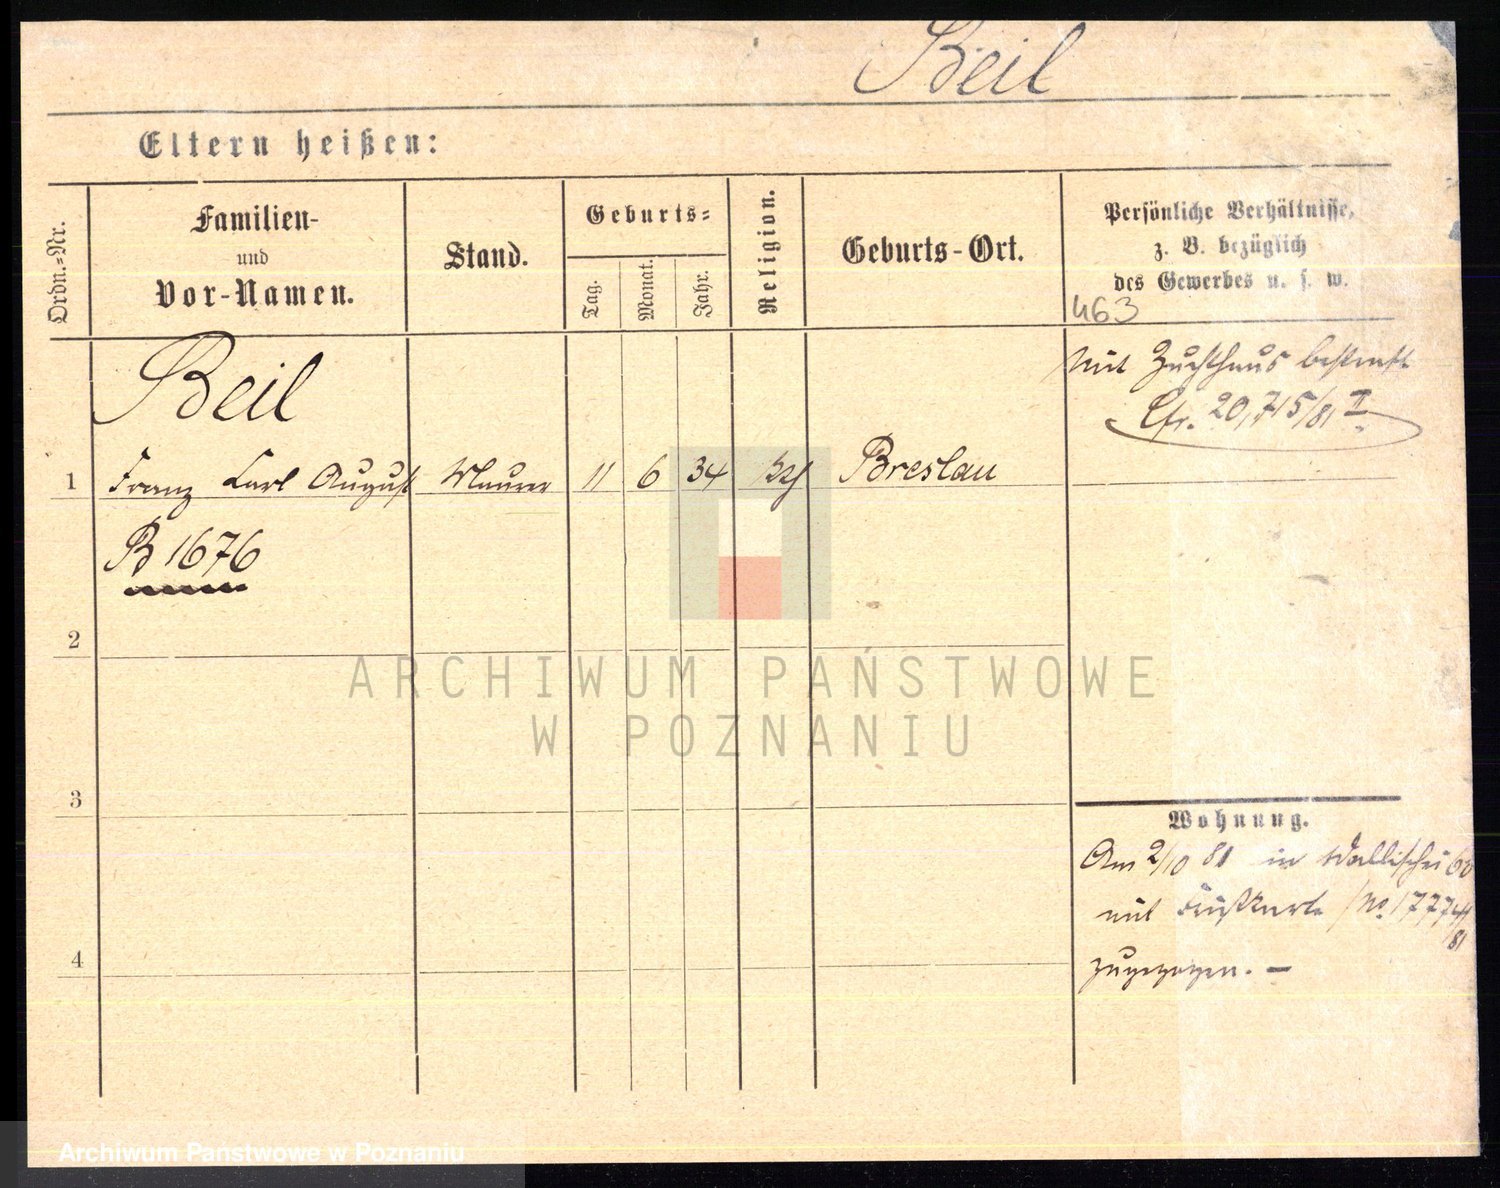 Beil
Eltern heißen:
Ordn.-Nr.
Familien-
und
Vor-Namen.
Stand.
Geburts-
Tag.
Monat.
Jahr.
Religion.
Geburts-Ort.
Persönliche Verhältnisse,
z. B. bezüglich
des Gewerbes u. s. w.
463
Beil
mit Zuchthaus bestraft
Cfr. 20,715/81 II.
1 Franz Carl August Maurer 11 6 34 Breslau
B 1676
2
ARCHIWUM PAŃSTWOWE
W POZNANIU
3
Wohnung.
Am 2/10 81 in Wallischei
mit No. 17774/81
4
zugezogen. —
Archiwum Państwowe w Poznaniu